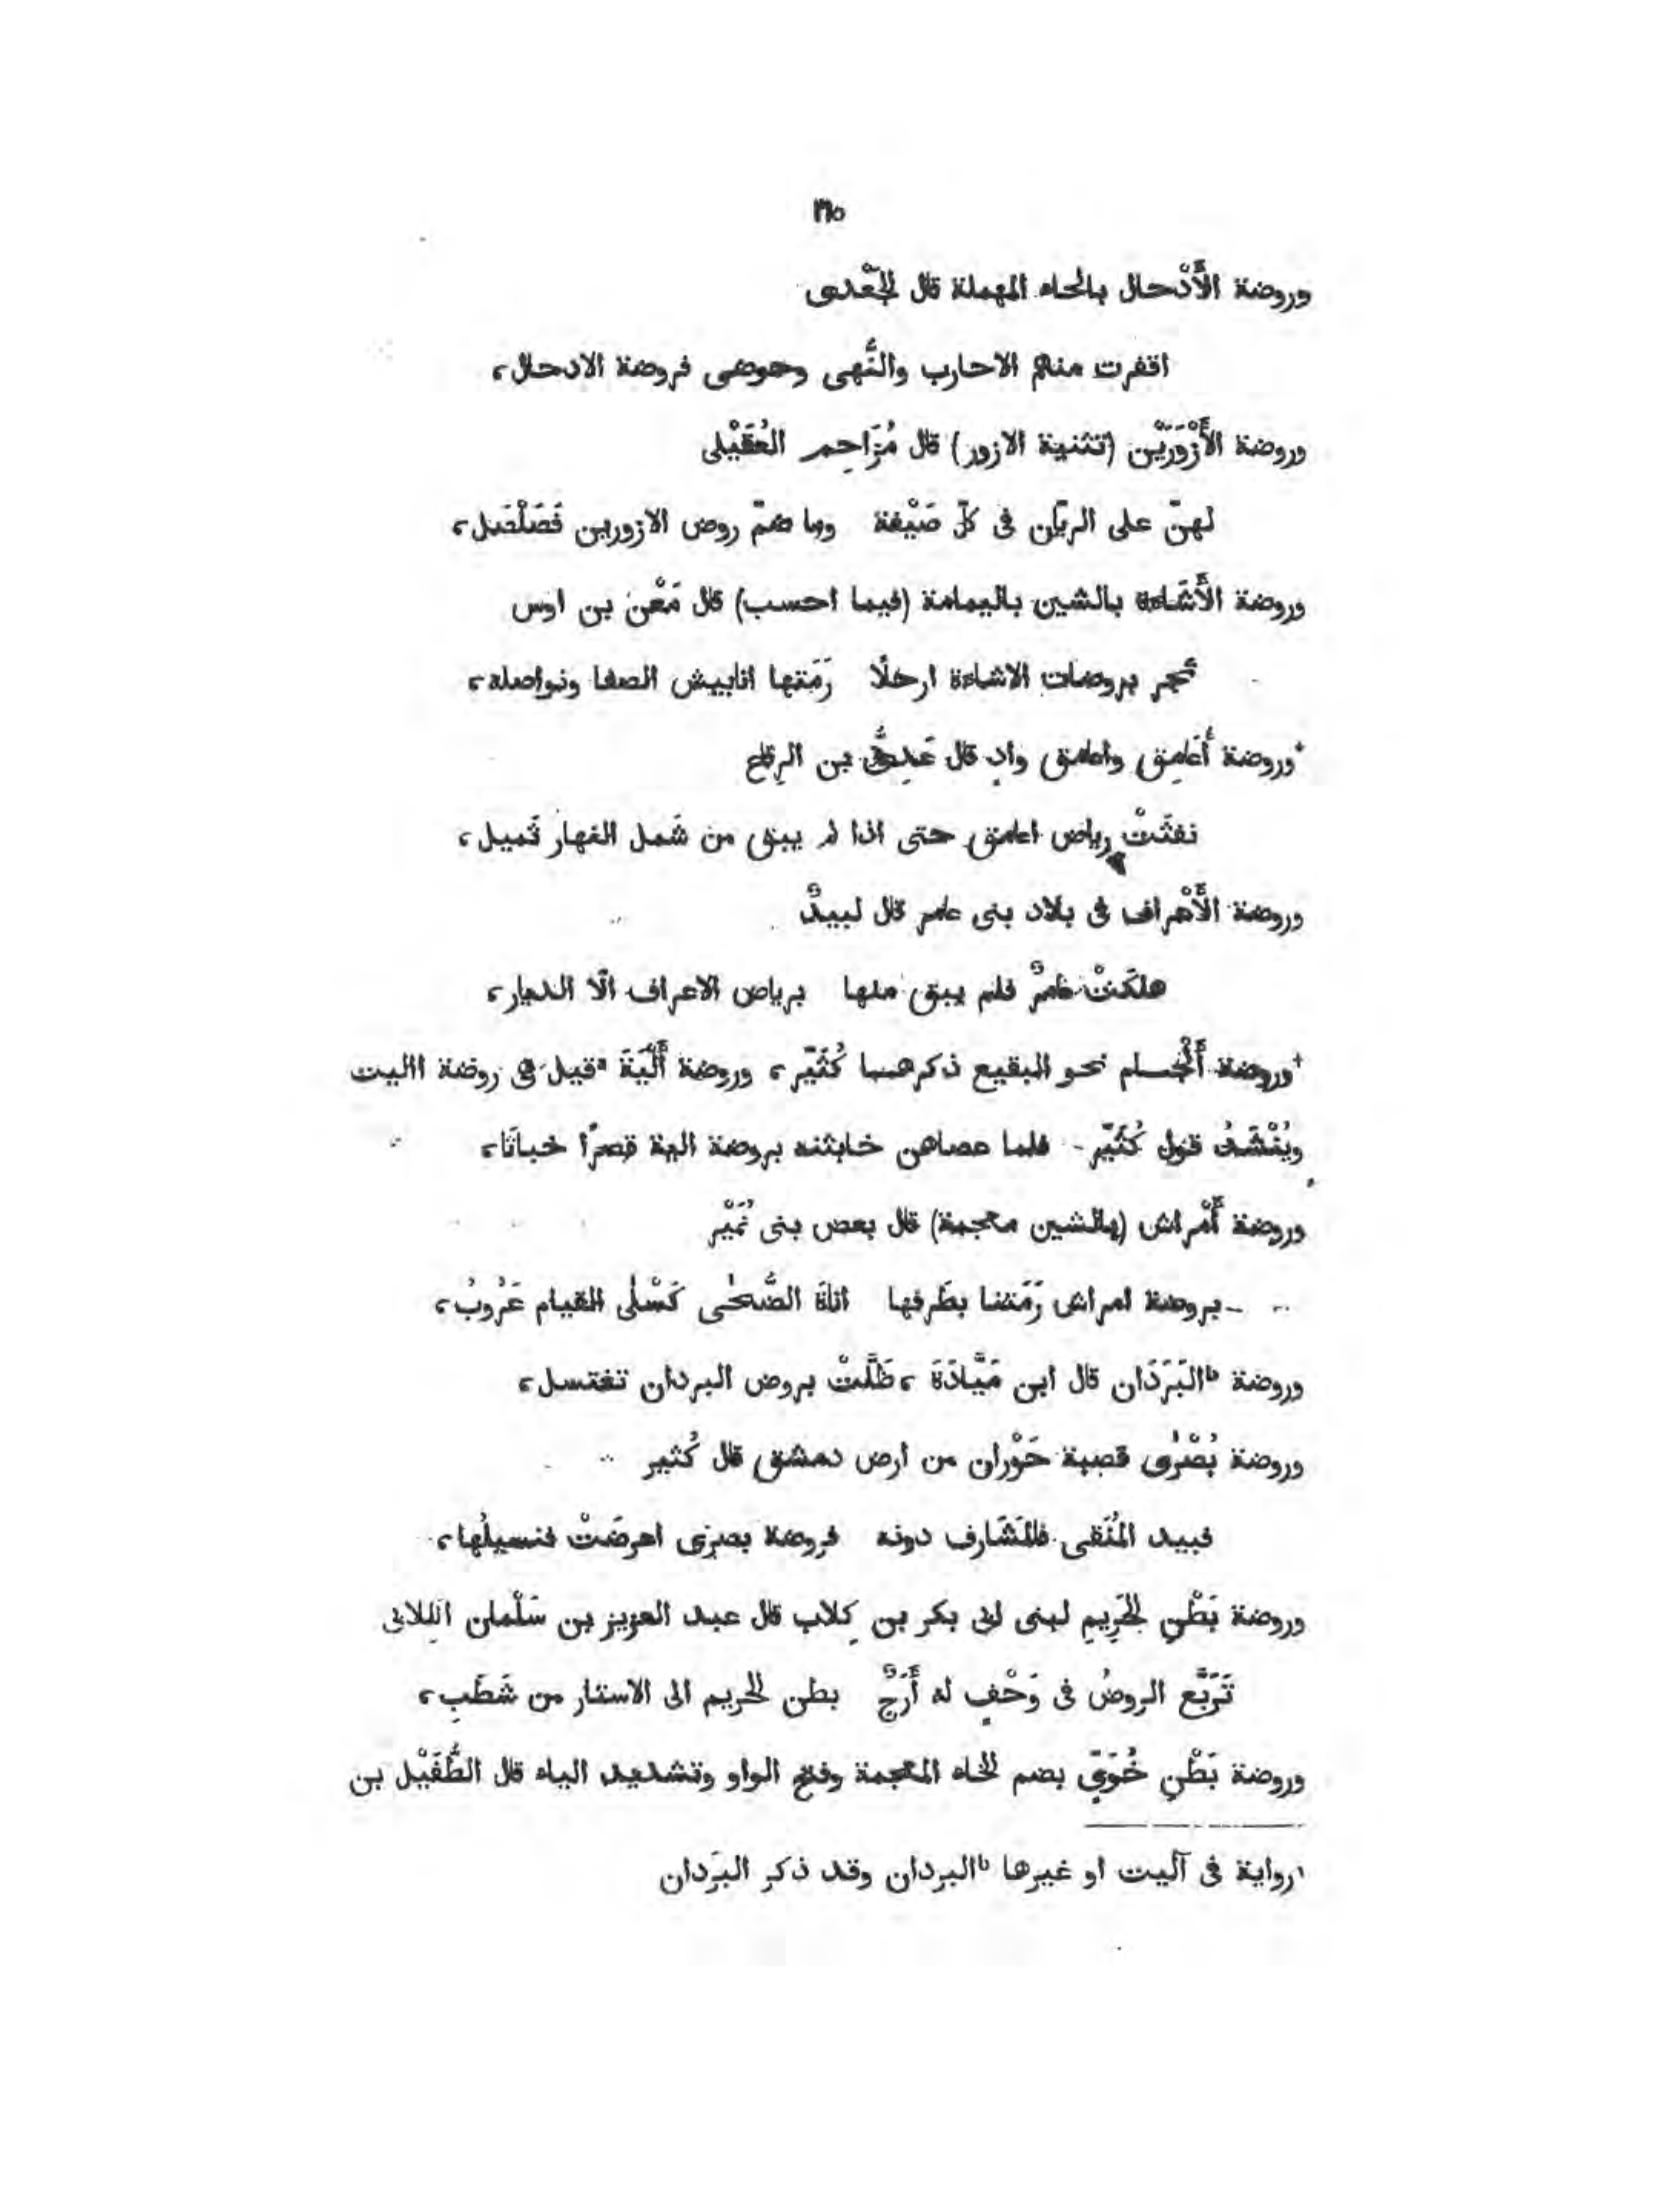 ٢١٥
وروضة الأَدْحال بالحاء المهملة قال الجَعْدى
اقفرت منهم الاحارب والنَّهى وحوضى فروضة الادحال،
وروضة الأَزْوَرَيْن (تثنية الازور) قال مُزَاحِم العُقَيْلى
لهنّ على الريّان فى كلّ صَيْفة وما ضمّ روض الازورين فَصَلْصَل،
وروضة الأَشَاءة بالشين باليمامة (فيما احسب) قال مَعْن بن اوس
تجر بروضات الاشاءة ارحلًا رَمَتها انابيش الصفا ونواصله،
+وروضة أُعَامِق واعامق وادٍ قال عَدِىُّ بن الرِقاع
نفثَتْ رياض اعامق حتى اذا لم يبق من شَمل النهار ثَميل،
وروضة الأَعْراف فى بلاد بنى عامر قال لبيدٌ
هلكَتْ عامرٌ فلم يبق منها برياض الاعراف الّا الديار،
+وروضة أَلْجام نحو البقيع ذكرهما كُثَيّر، وروضة أَلْيَةَ ªقيل هى روضة اليت
ويُنْشَدُ قول كُثَيّر - فلما عصاهن خابثنه بروضة الية قصرًا خباثَا،
وروضة أَمْراش (بالشين معجمة) قال بعض بنى نُمَيْر
بروضة امراش رَمَتنا بطَرفها اناةُ الضُّحٰى كَسْلٰى القيام عَرُوبُ،
وروضة ᵇالبَرَدَان قال ابن مَيَّادَةَ، ظَلَّتْ بروض البردان تغتسل،
وروضة بُصْرٰى قصبة حَوْران من ارض دمشق قال كُثير
فبيد المُنَقى فالمَشَارف دونه فروضة بصرى اعرضَتْ فنسيلُها،
وروضة بَطْنِ الحَرِيمِ لبنى ابى بكر بن كِلاب قال عبد العزيز بن سَلْمان الكِلابى
تَرَبَّع الروضُ فى وَحْفٍ له أَرَجٌ بطن الحريم الى الاستار من شَطَبِ،
وروضة بَطْنِ خُوَىّ بضم الخاء المعجمة وفتح الواو وتشديد الياء قال الطُّفَيْل بن
ªرواية فى آليت او غيرها ᵇالبردان وقد ذكر البَرَدان